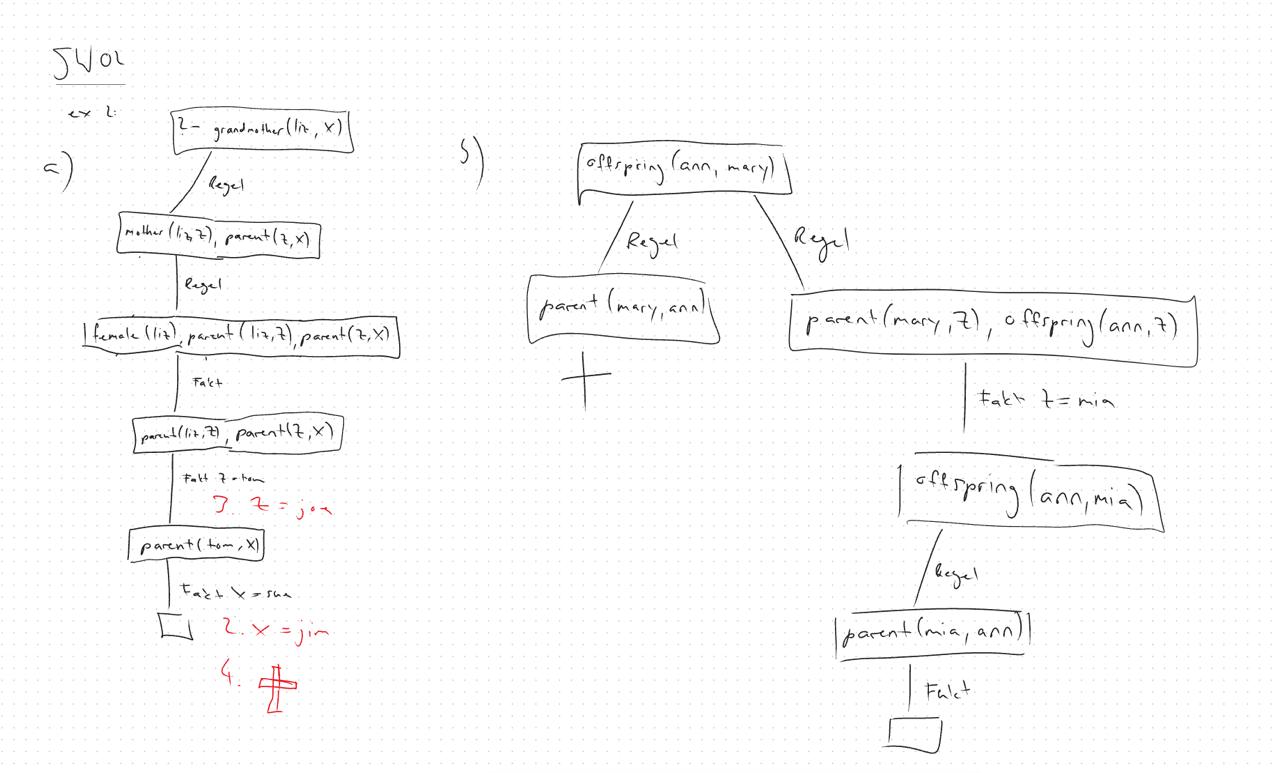 SW02
ex 2:
a)
?- grandmother(liz, X)
Regel
mother(liz,Z), parent(Z,X)
Regel
female(liz), parent(liz,Z), parent(Z,X)
Fakt
parent(liz,Z), parent(Z,X)
Fakt Z=tom
3. Z = joe
parent(tom, X)
Fakt X = sue
2. X = jim
4.
b)
offspring(ann, mary)
Regel
Regel
parent(mary, ann)
parent(mary, Z), offspring(ann, Z)
Fakt Z = mia
offspring(ann, mia)
Regel
parent(mia, ann)
Fakt